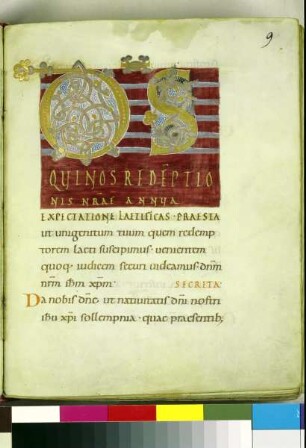 9
DS
QUI NOS REDĒPTIO
NIS NRAE ANNUA
EXPECTATIONE LAETIFICAS · PRAESTA
ut unigenitum tuum quem redemp
torem laeti suscipimus · uenientem
quoq· iudicem securi uideamus · dnm
nrm ihm xpm · SECRETA
Da nobis dne · ut natiuitatis dni nostri
ihu xpi sollempnia · quae praesentib;